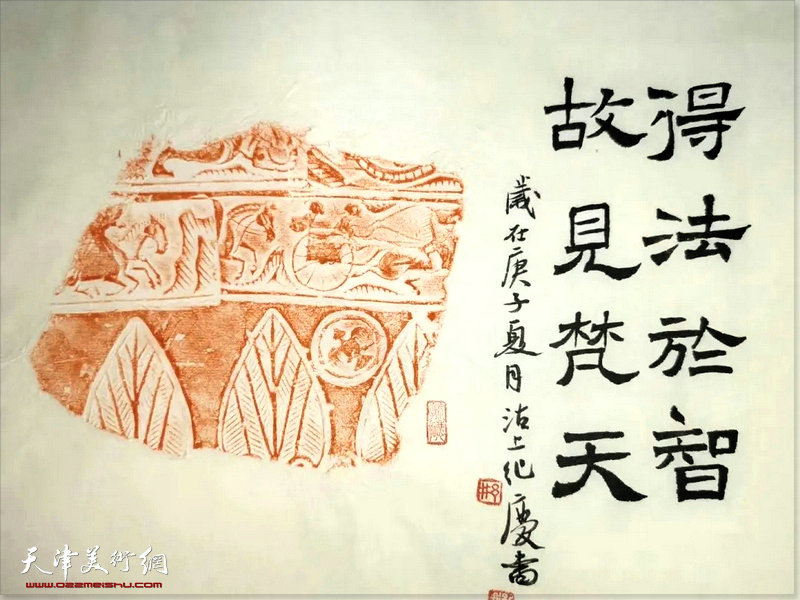 得法於智
故見梵天
歲在庚子夏月沽上纪慶書
天津美術網
www.022meishu.com